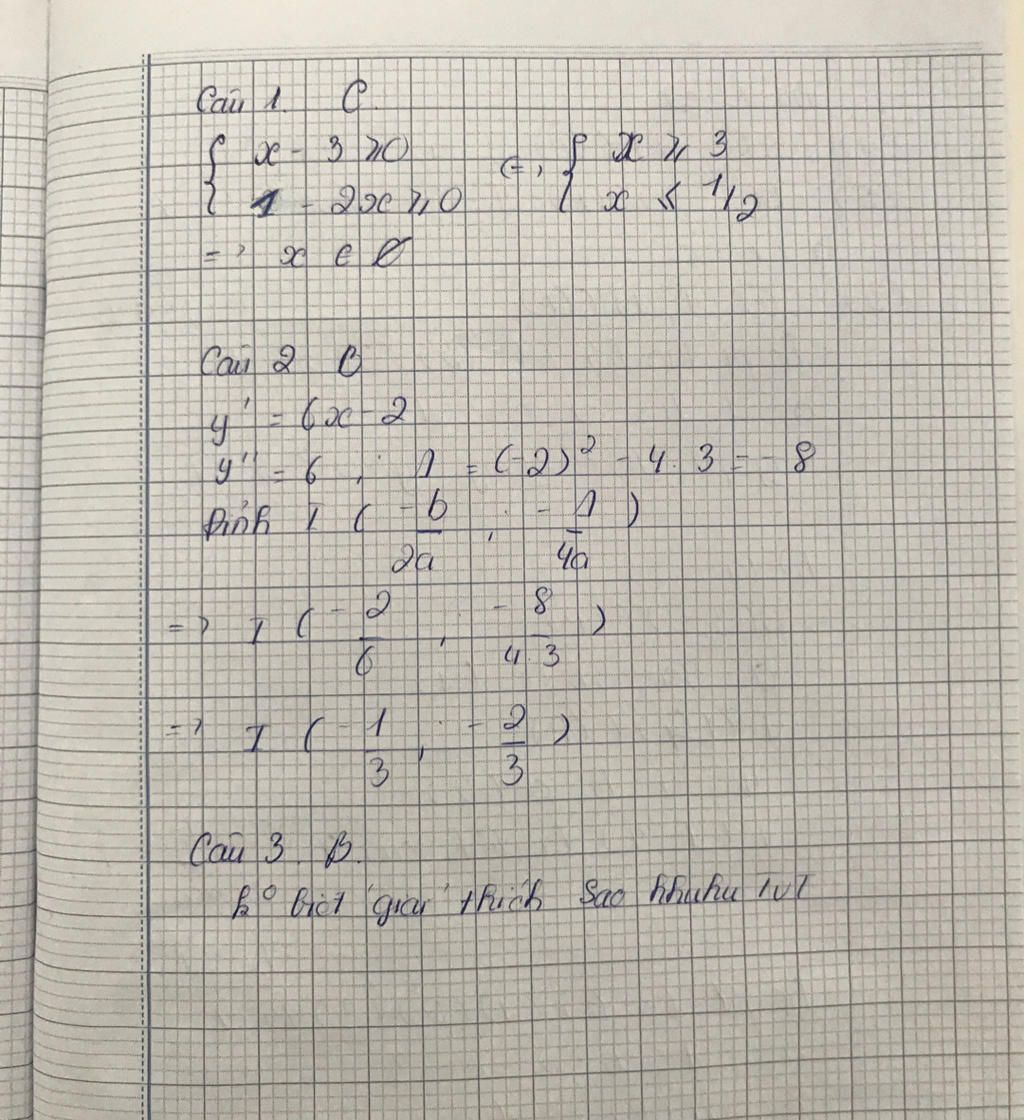 Câu 1. C.
{ x - 3 ≥ 0 <=> { x ≥ 3
{ 1 - 2x ≥ 0 { x ≤ 1/2
=> x ∈ ∅
Câu 2 B
y' = 6x - 2
y'' = 6 ; Δ = (-2)² - 4.3 = -8
Đỉnh I ( -b/2a ; -Δ/4a )
=> I ( -2/6 ; -8/4.3 )
=> I ( -1/3 ; -2/3 )
Câu 3. B.
k° biết giải thích sao khuhu